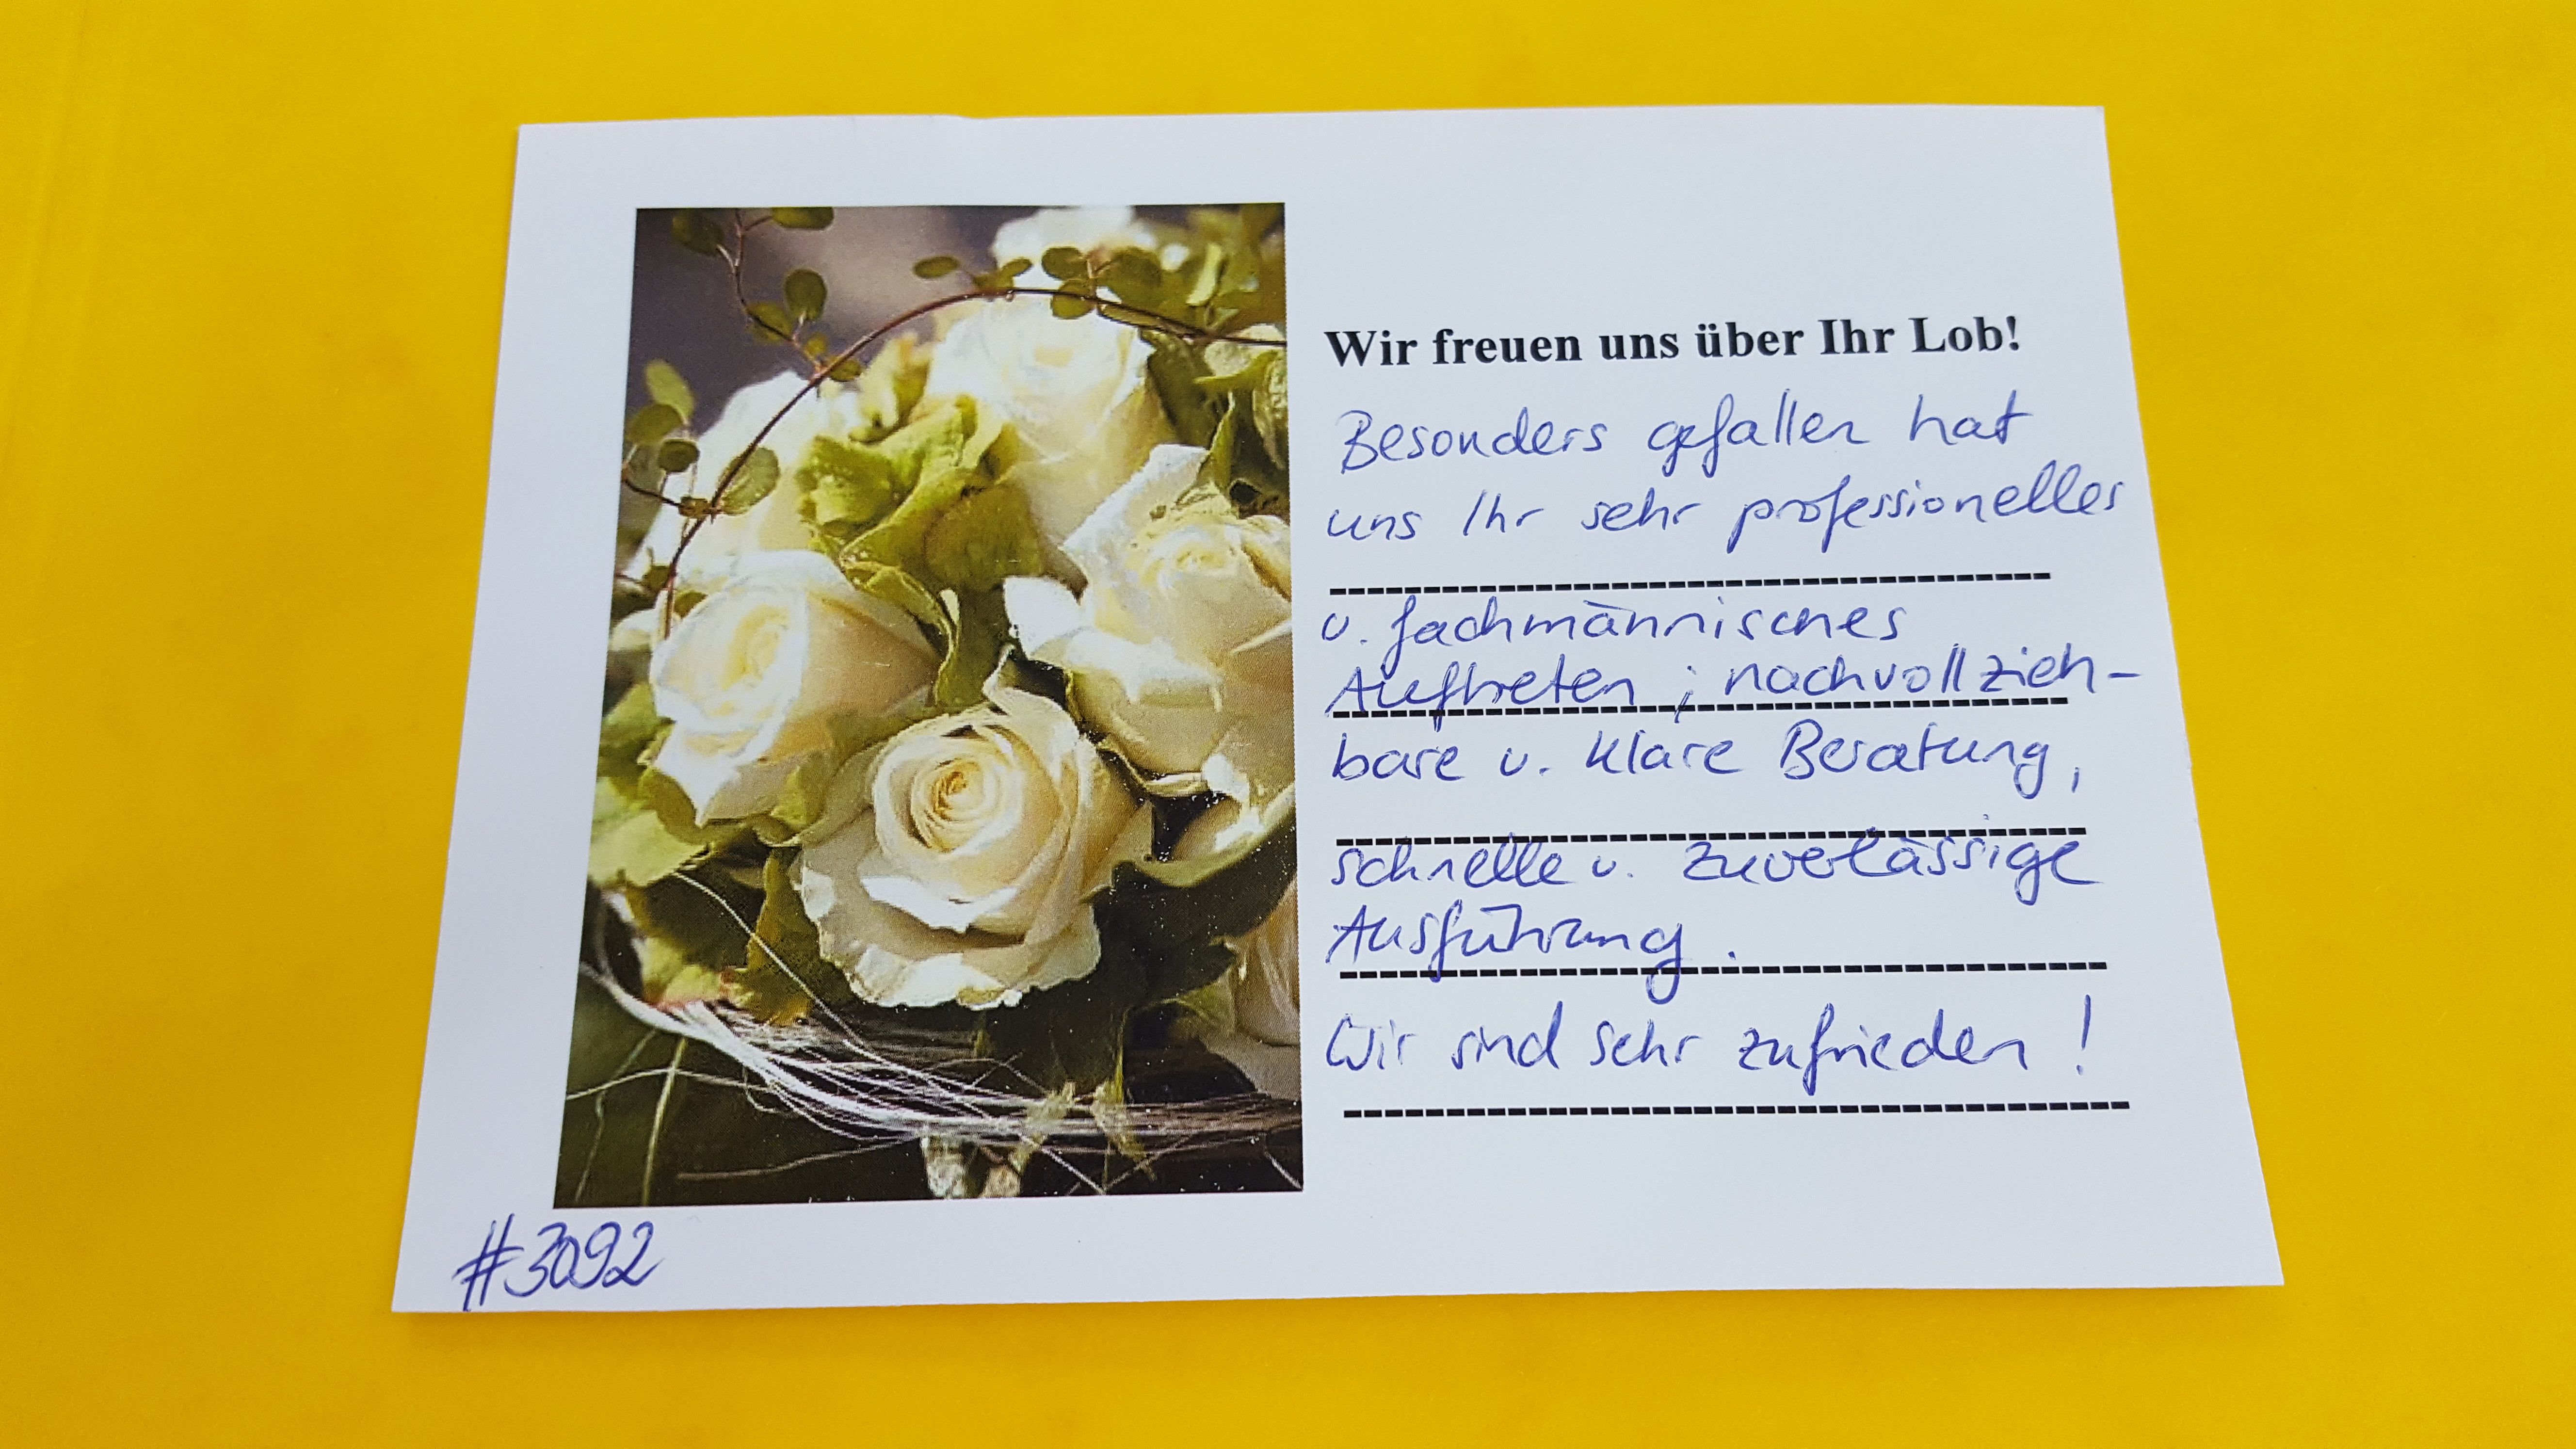 Wir freuen uns über Ihr Lob!
Besonders gefallen hat
uns Ihr sehr professionelles
u. fachmännisches
Auftreten ; nachvollzieh-
bare u. klare Beratung,
schnelle u. zuverlässige
Ausführung.
Wir sind sehr zufrieden !
#3092